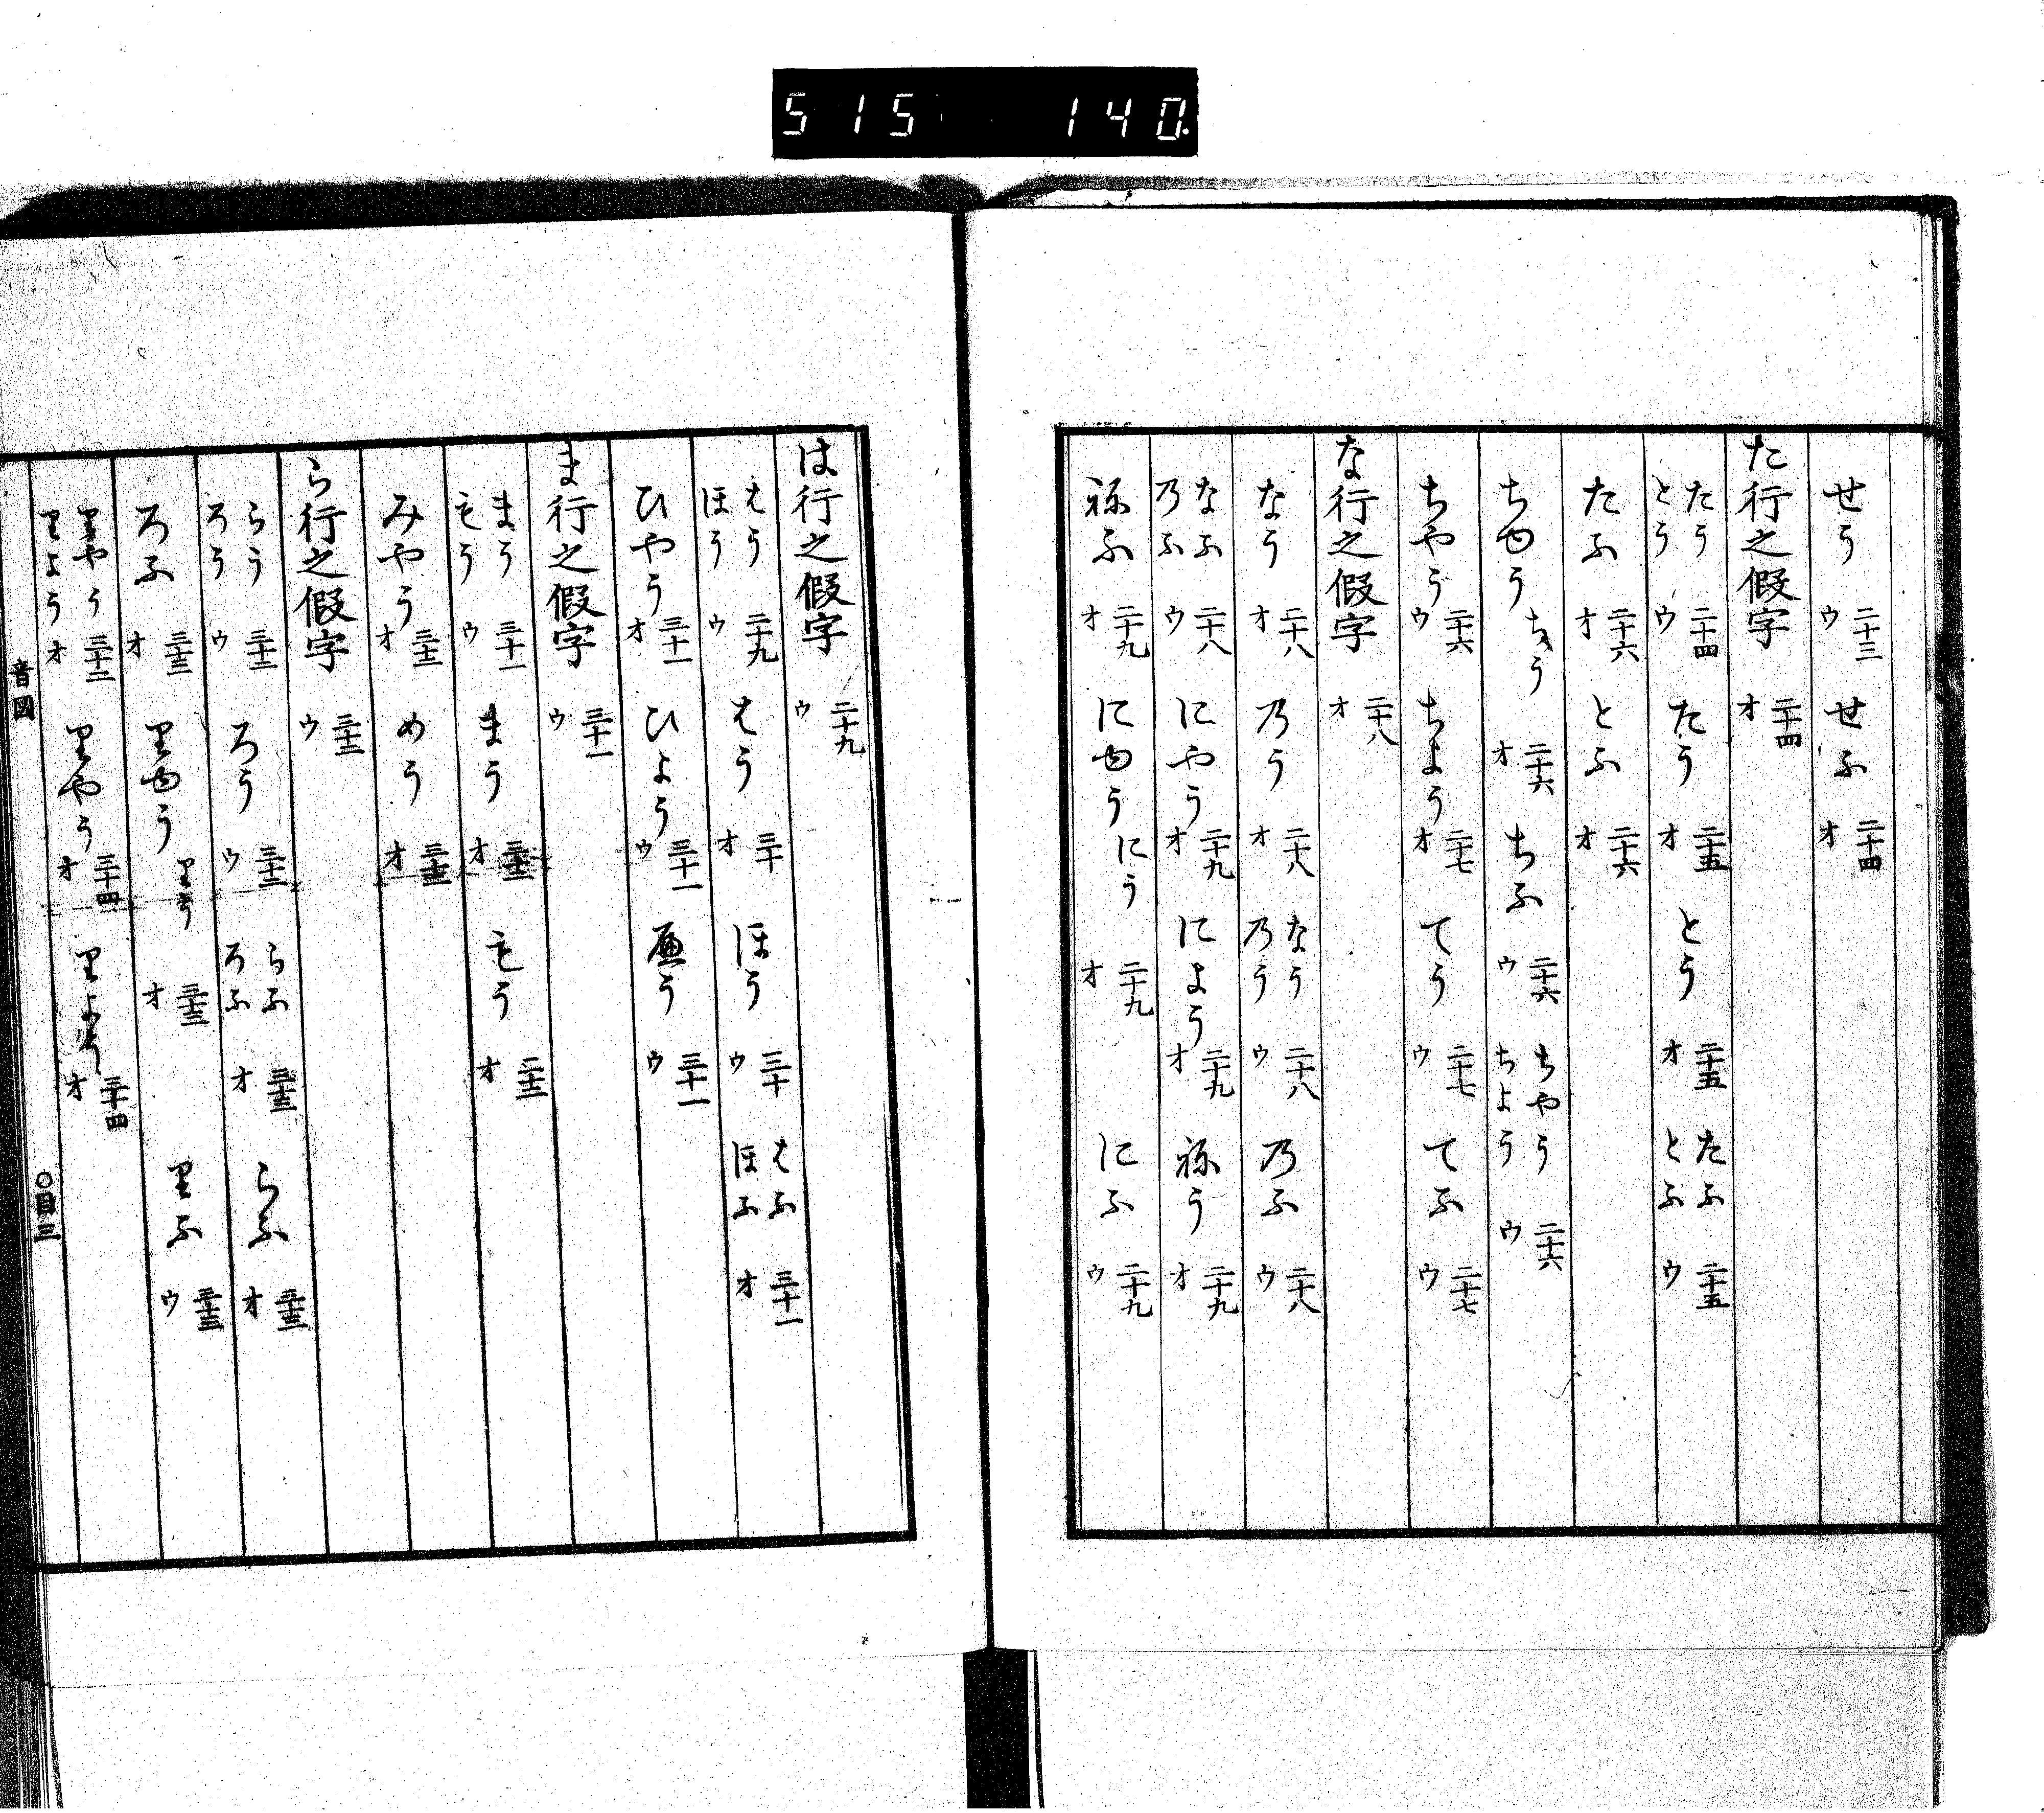 515 140.
せう 二十三ウ せふ 二十四オ
た行之假字 二十四オ
たう とう 二十四ウ たう 二十五オ とう 二十五オ たふ とふ 二十五ウ
たふ 二十六オ とふ 二十六オ
ちゆう ちう 二十六オ ちふ 二十六ウ ちやう ちよう 二十六ウ
ちやう 二十六ウ ちよう 二十七オ てう 二十七ウ てふ 二十七ウ
な行之假字 二十八オ
なう 二十八オ 乃う 二十八オ なう 乃う 二十八ウ 乃ふ 二十八ウ
なふ 乃ふ 二十八ウ にやう 二十九オ によう 二十九オ 祢う 二十九オ
祢ふ 二十九オ にゆう にう 二十九オ にふ 二十九ウ
は行之假字 二十九ウ
はう ほう 二十九ウ はう 三十オ ほう 三十ウ はふ ほふ 三十一オ
ひやう 三十一オ ひよう 三十一ウ へう 三十一ウ
ま行之假字 三十一ウ
まう もう 三十一ウ まう 三十二オ もう 三十二オ
みやう 三十二オ めう 三十二オ
ら行之假字 三十二ウ
らう ろう 三十二ウ ろう 三十二ウ らふ ろふ 三十三オ らふ 三十三オ
ろふ 三十三オ りゆう りう 三十三オ りふ 三十三ウ
りやう りよう 三十三オ りやう 三十四オ りよう 三十四オ
音図 〇目三